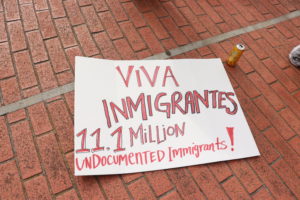 ViVA
INMIGRANTES
11.1 MilLION
UNDOCUMENTED Immigrants!